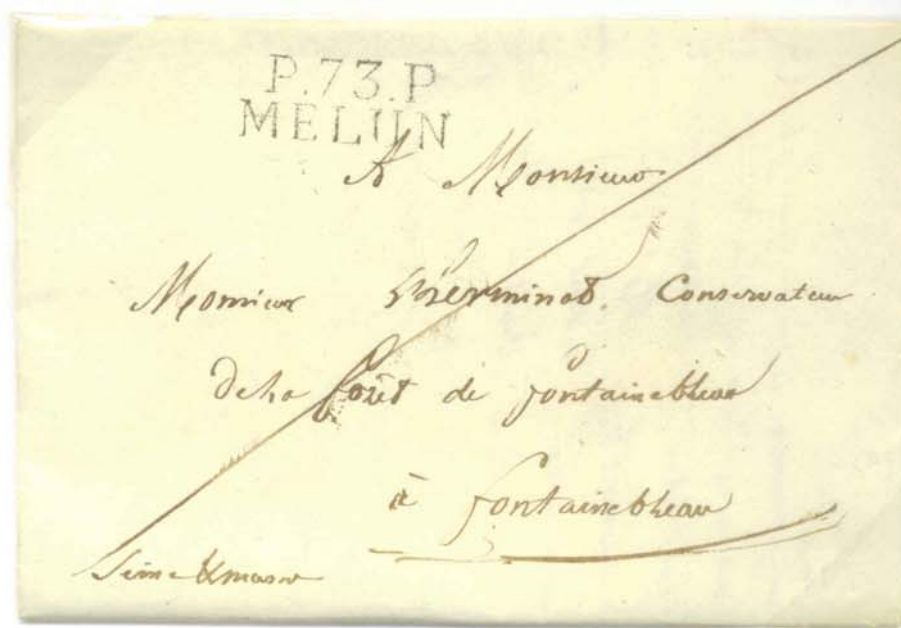 P.73.P
MELUN
A Monsieur
Monsieur Therminot. Conservateur
de la forêt de fontainebleau
à fontainebleau
Seine & marne